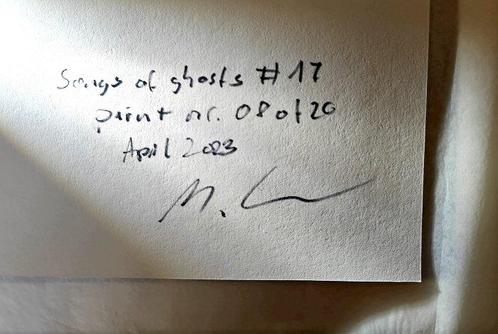 Songs of ghosts #17
print nr. 08 of 20
April 2023
M.